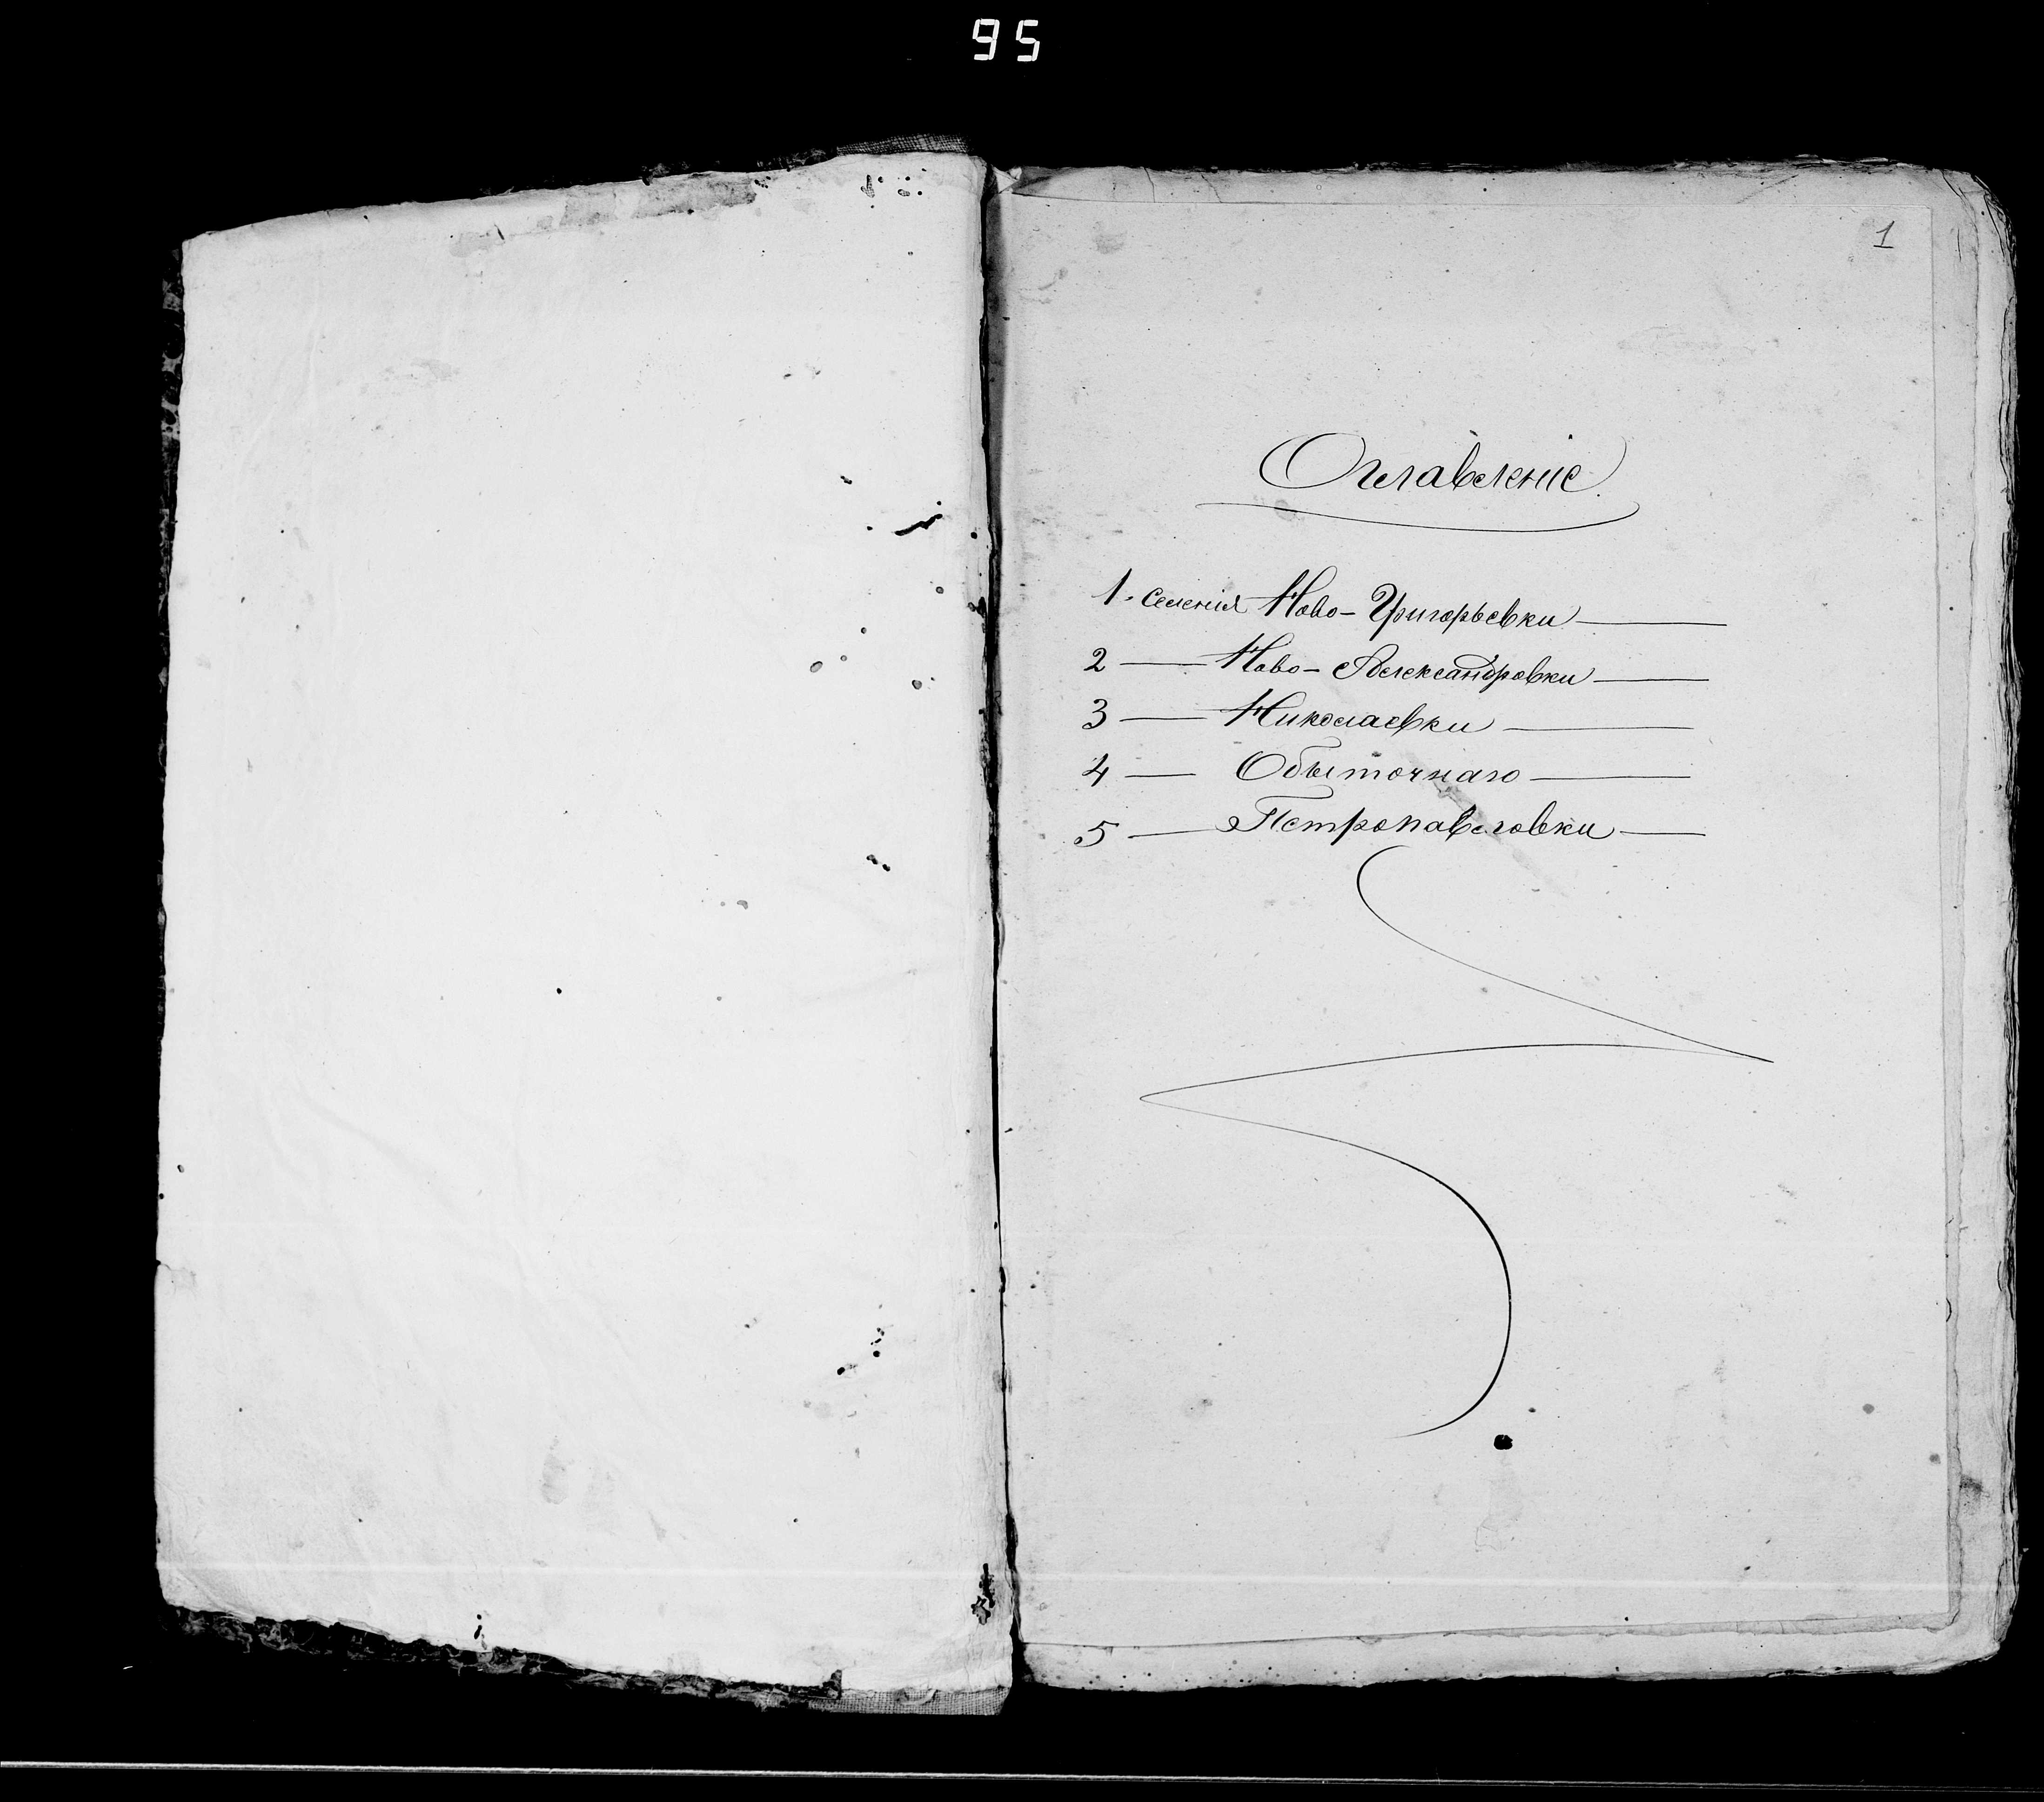 95
1
Оглавленіе.
1. Селенія Ново-Григорьевки —
2 — Ново-Александровки —
3 — Николаевки —
4 — Обыточнаго —
5 — Петропавловки —